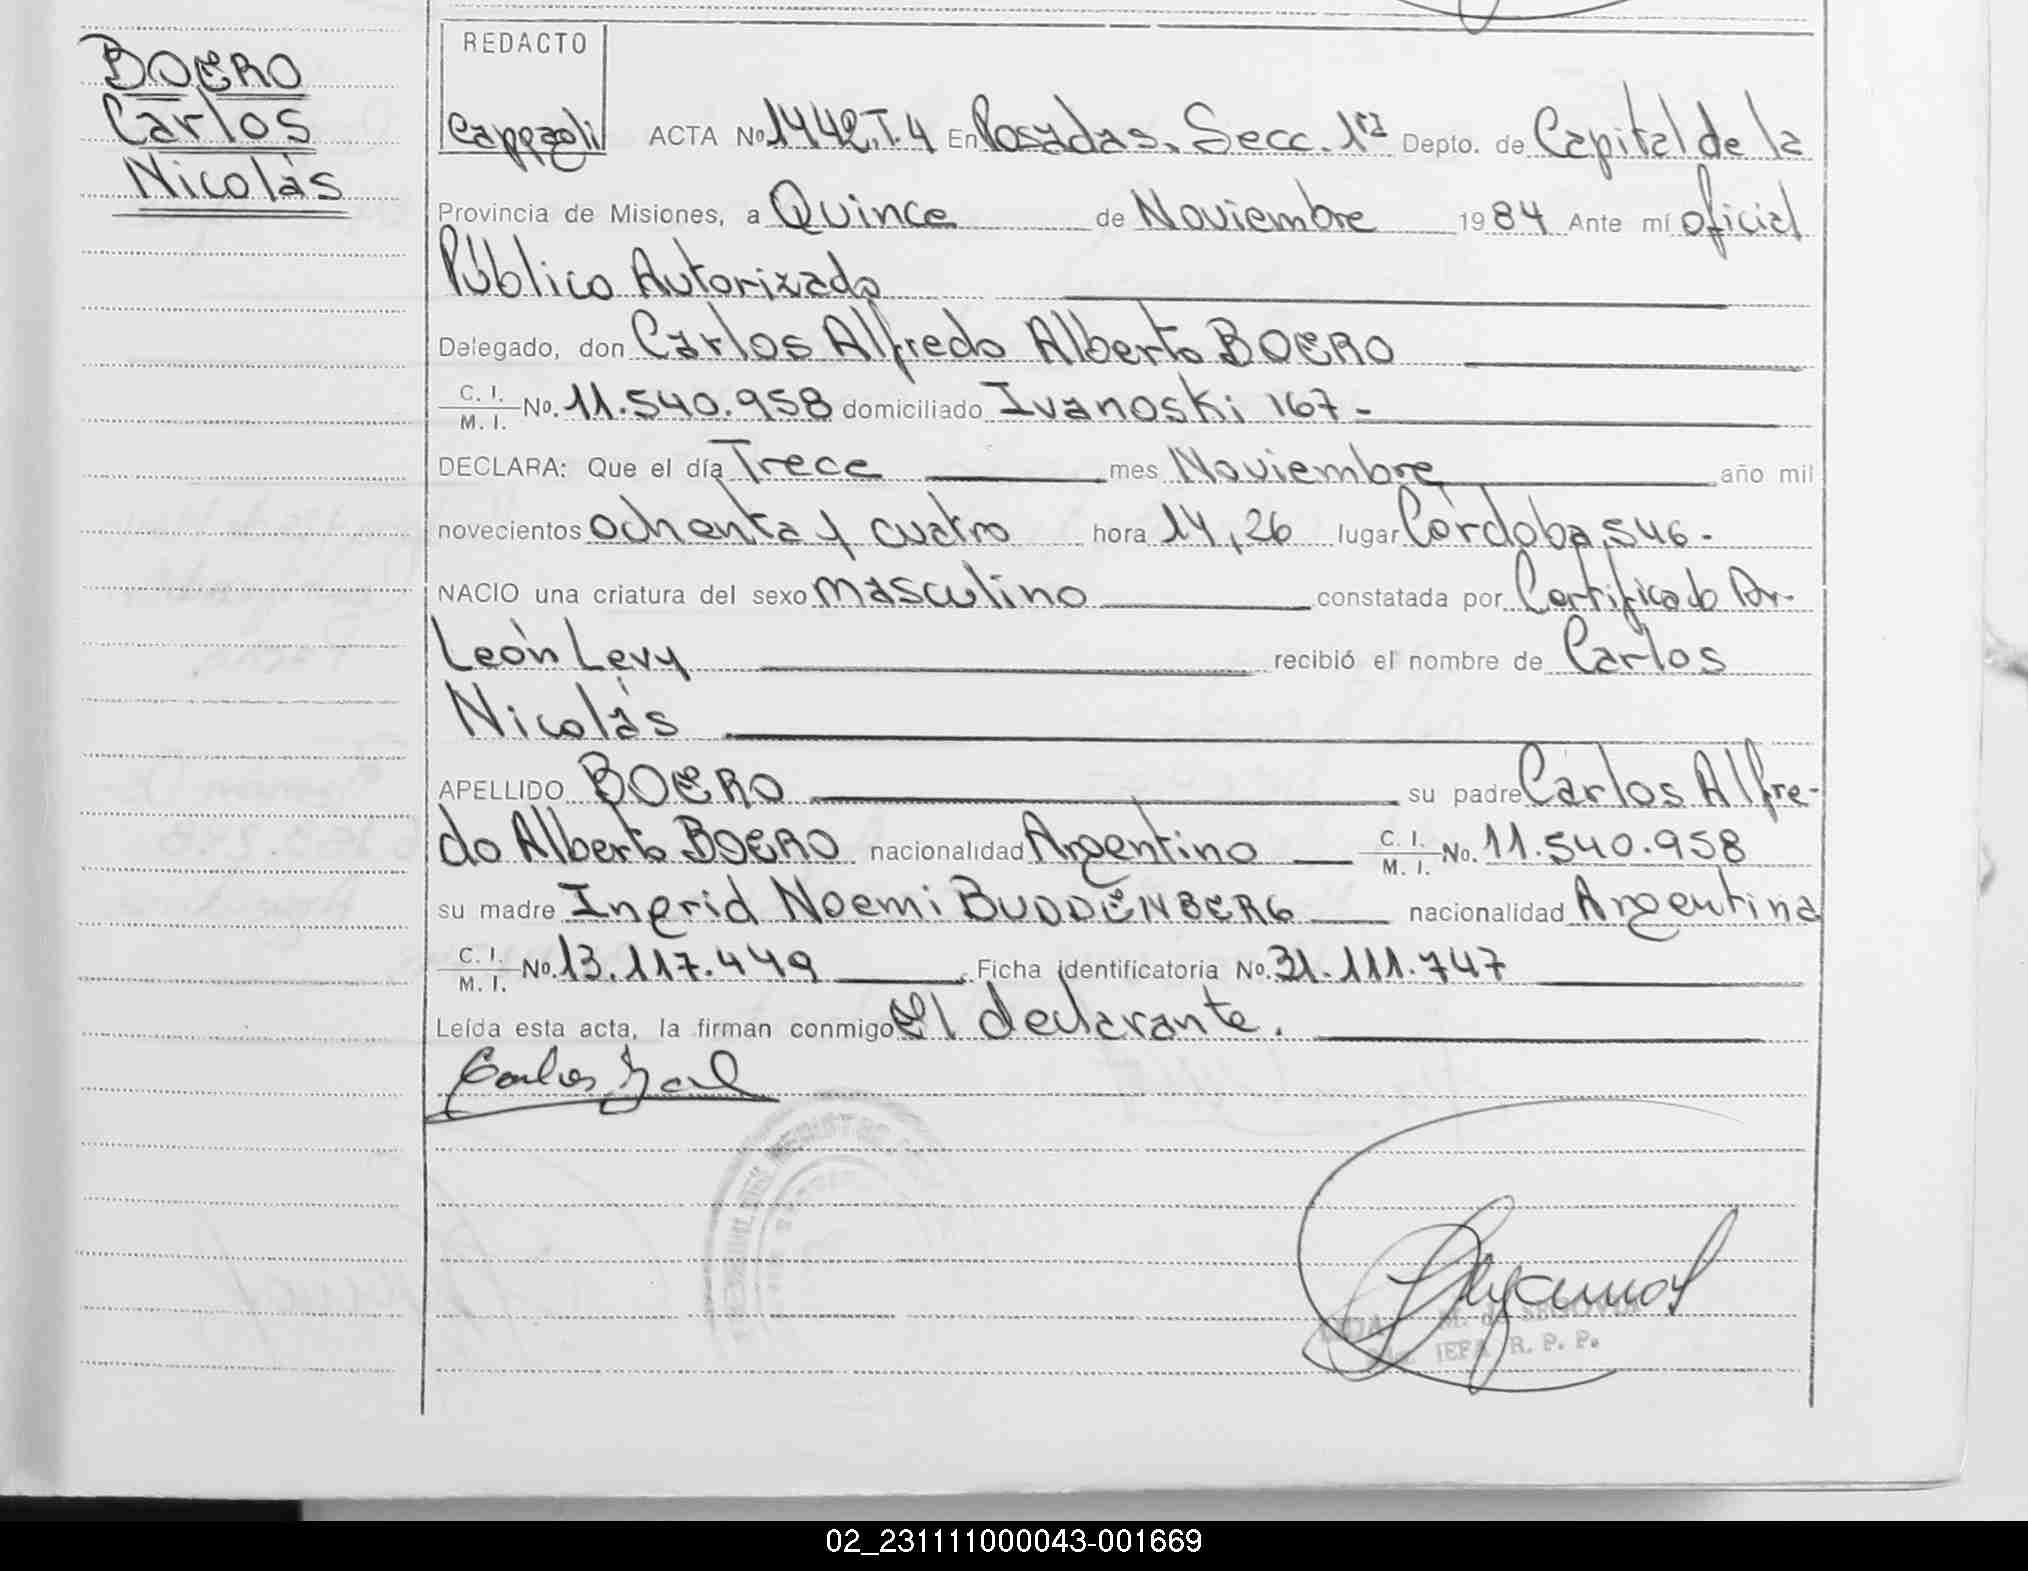 BOERO
Carlos
Nicolás
REDACTO
Cappzoli
ACTA No 1442, T. 4 En Posadas, Secc. 1ra Depto. de Capital de la
Provincia de Misiones, a Quince de Noviembre 1984 Ante mí oficial
Público Autorizado
Delegado, don Carlos Alfredo Alberto BOERO
C. I. / M. I. No. 11.540.958 domiciliado Ivanoski 167 -
DECLARA: Que el día Trece mes Noviembre año mil
novecientos ochenta y cuatro hora 14,26 lugar Córdoba 546 -
NACIO una criatura del sexo masculino constatada por Certificado Dr.
León Levy recibió el nombre de Carlos
Nicolás
APELLIDO BOERO su padre Carlos Alfre-
do Alberto BOERO nacionalidad Argentino C. I. / M. I. No. 11.540.958
su madre Ingrid Noemi BUDDENBERG nacionalidad Argentina
C. I. / M. I. No. 13.117.449 Ficha identificatoria No. 31.111.747
Leída esta acta, la firman conmigo El declarante.
M. de SEGOVIA
R. P. P.
02_231111000043-001669